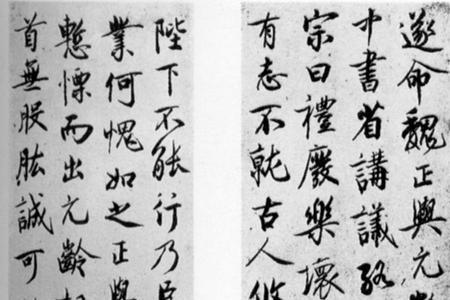 遂命魏正與元
中書省講議
宗曰禮廢樂壞
有志不就古人攸
陛下不能行乃臣
業何愧如之正與
慙慄而出元齡
首無股肱誠可